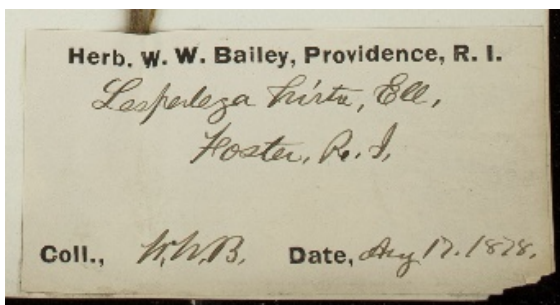 Herb. W. W. Bailey, Providence, R. I.
Lespedeza hirta, Ell.
Foster, R. I.
Coll., W. W. B. Date, Aug 17. 1878.